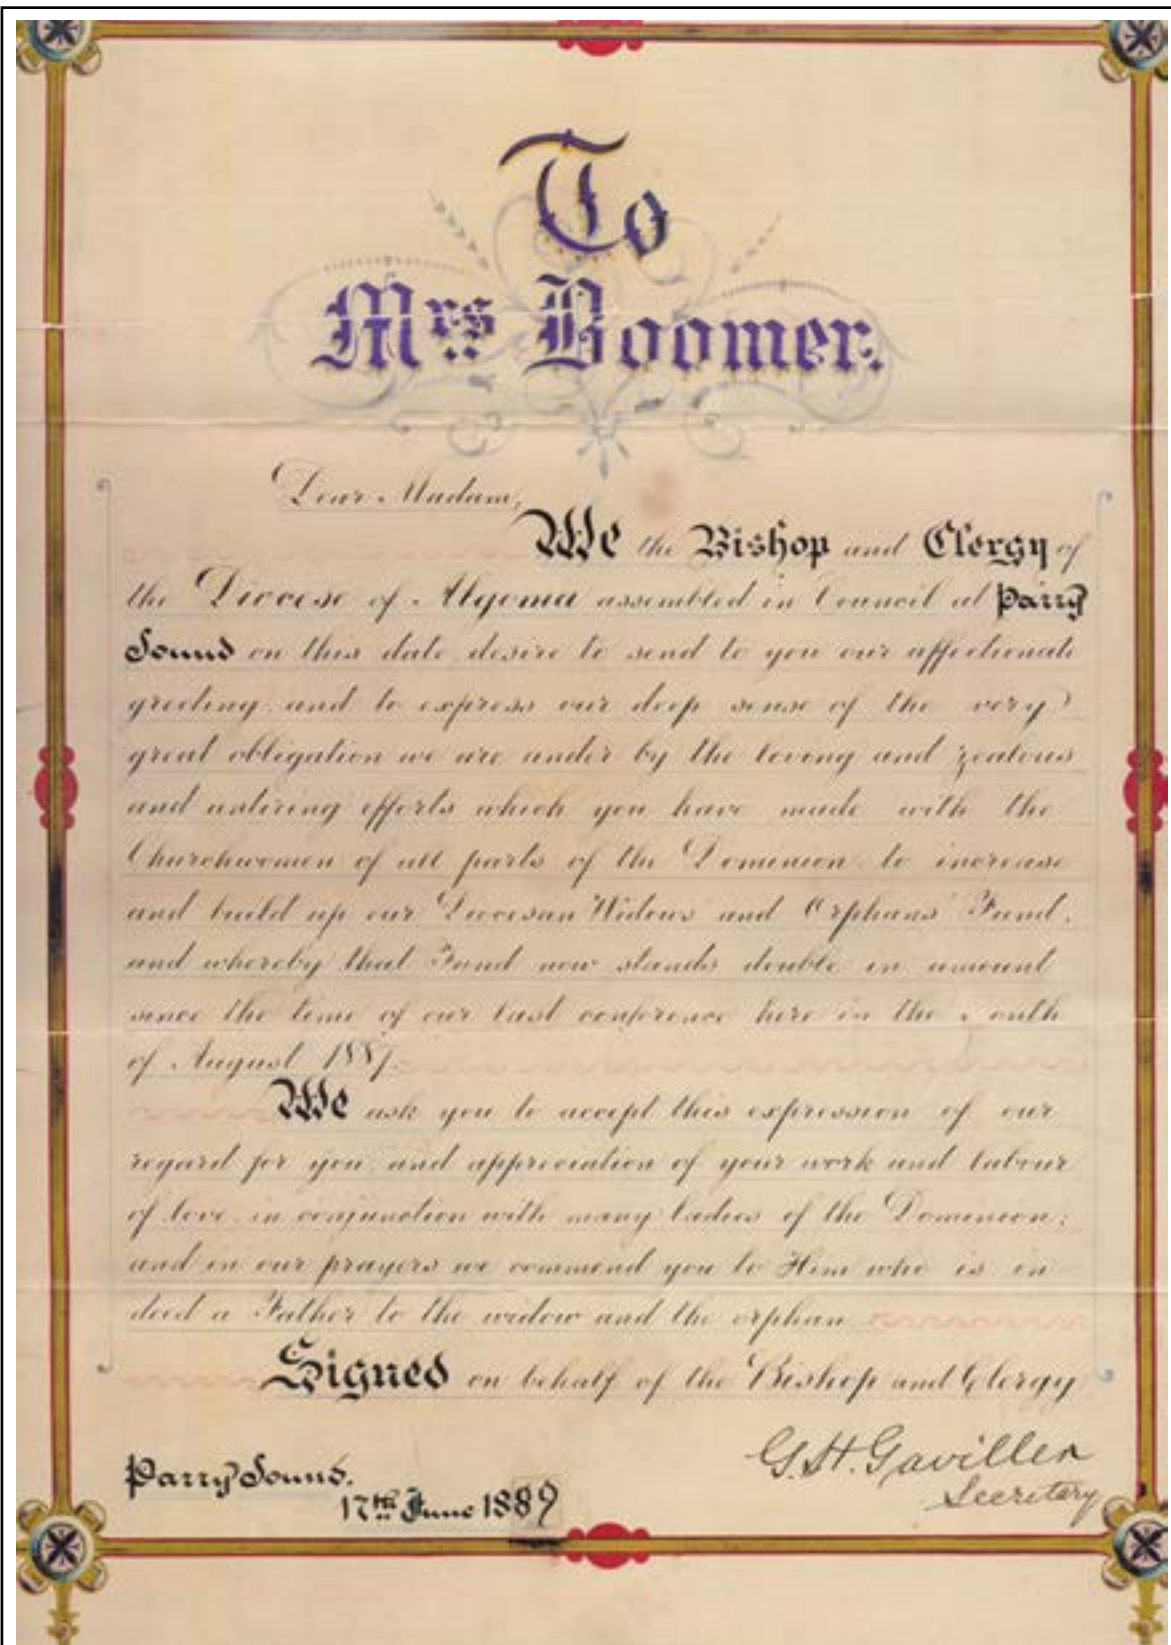 To
Mrs Boomer.
Dear Madam,
We the Bishop and Clergy of
the Diocese of Algoma assembled in Council at Parry
Sound on this date desire to send to you our affectionate
greeting, and to express our deep sense of the very
great obligation we are under by the loving and zealous
and untiring efforts which you have made with the
Churchwomen of all parts of the Dominion to increase
and build up our Diocesan Widows and Orphans' Fund,
and whereby that Fund now stands double in amount
since the time of our last conference here in the
of August 1887.
We ask you to accept this expression of our
regard for you, and appreciation of your work and labour
of love, in conjunction with many ladies of the Dominion;
and in our prayers we commend you to Him who is in
deed a Father to the widow and the orphan
Signed on behalf of the Bishop and Clergy
G. H. Gaviller
Secretary
Parry Sound.
17th June 1889